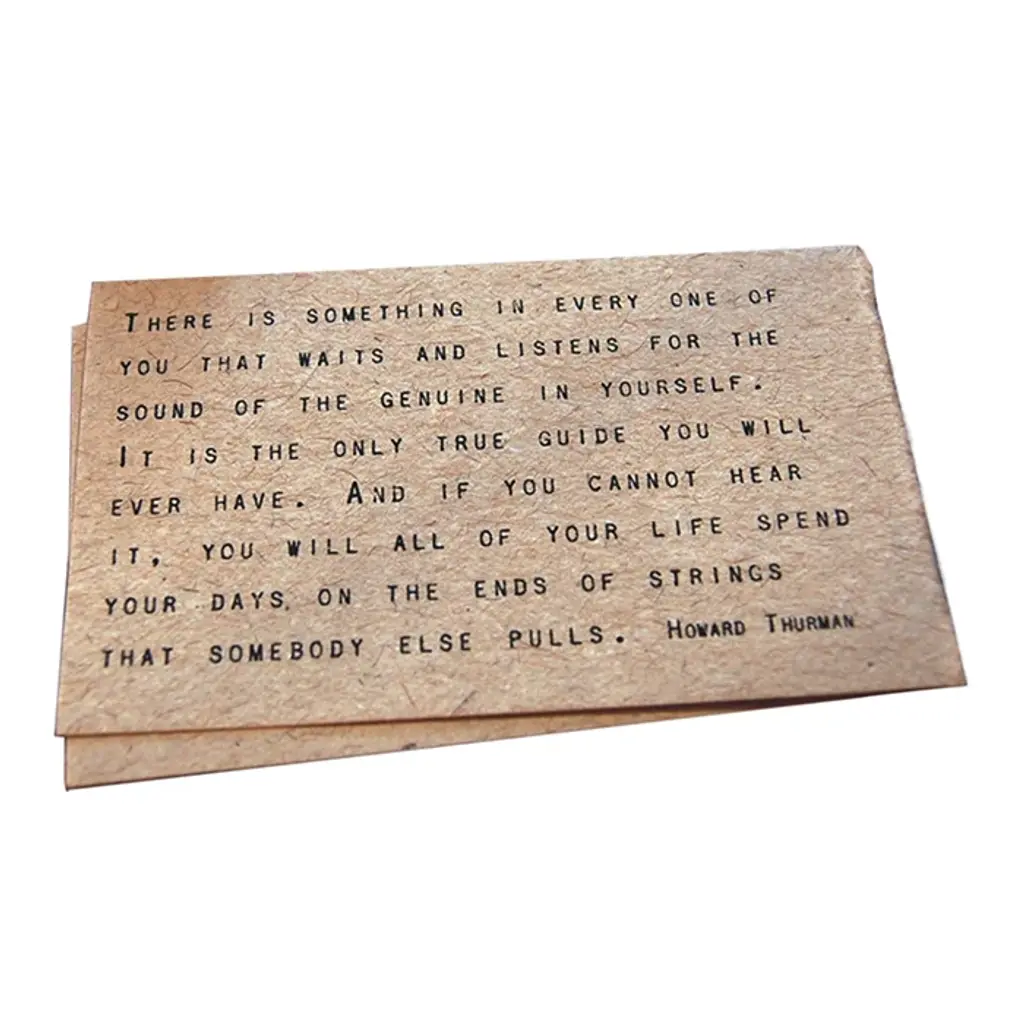 There is something in every one of
you that waits and listens for the
sound of the genuine in yourself.
It is the only true guide you will
ever have. And if you cannot hear
it, you will all of your life spend
your days on the ends of strings
that somebody else pulls. Howard Thurman